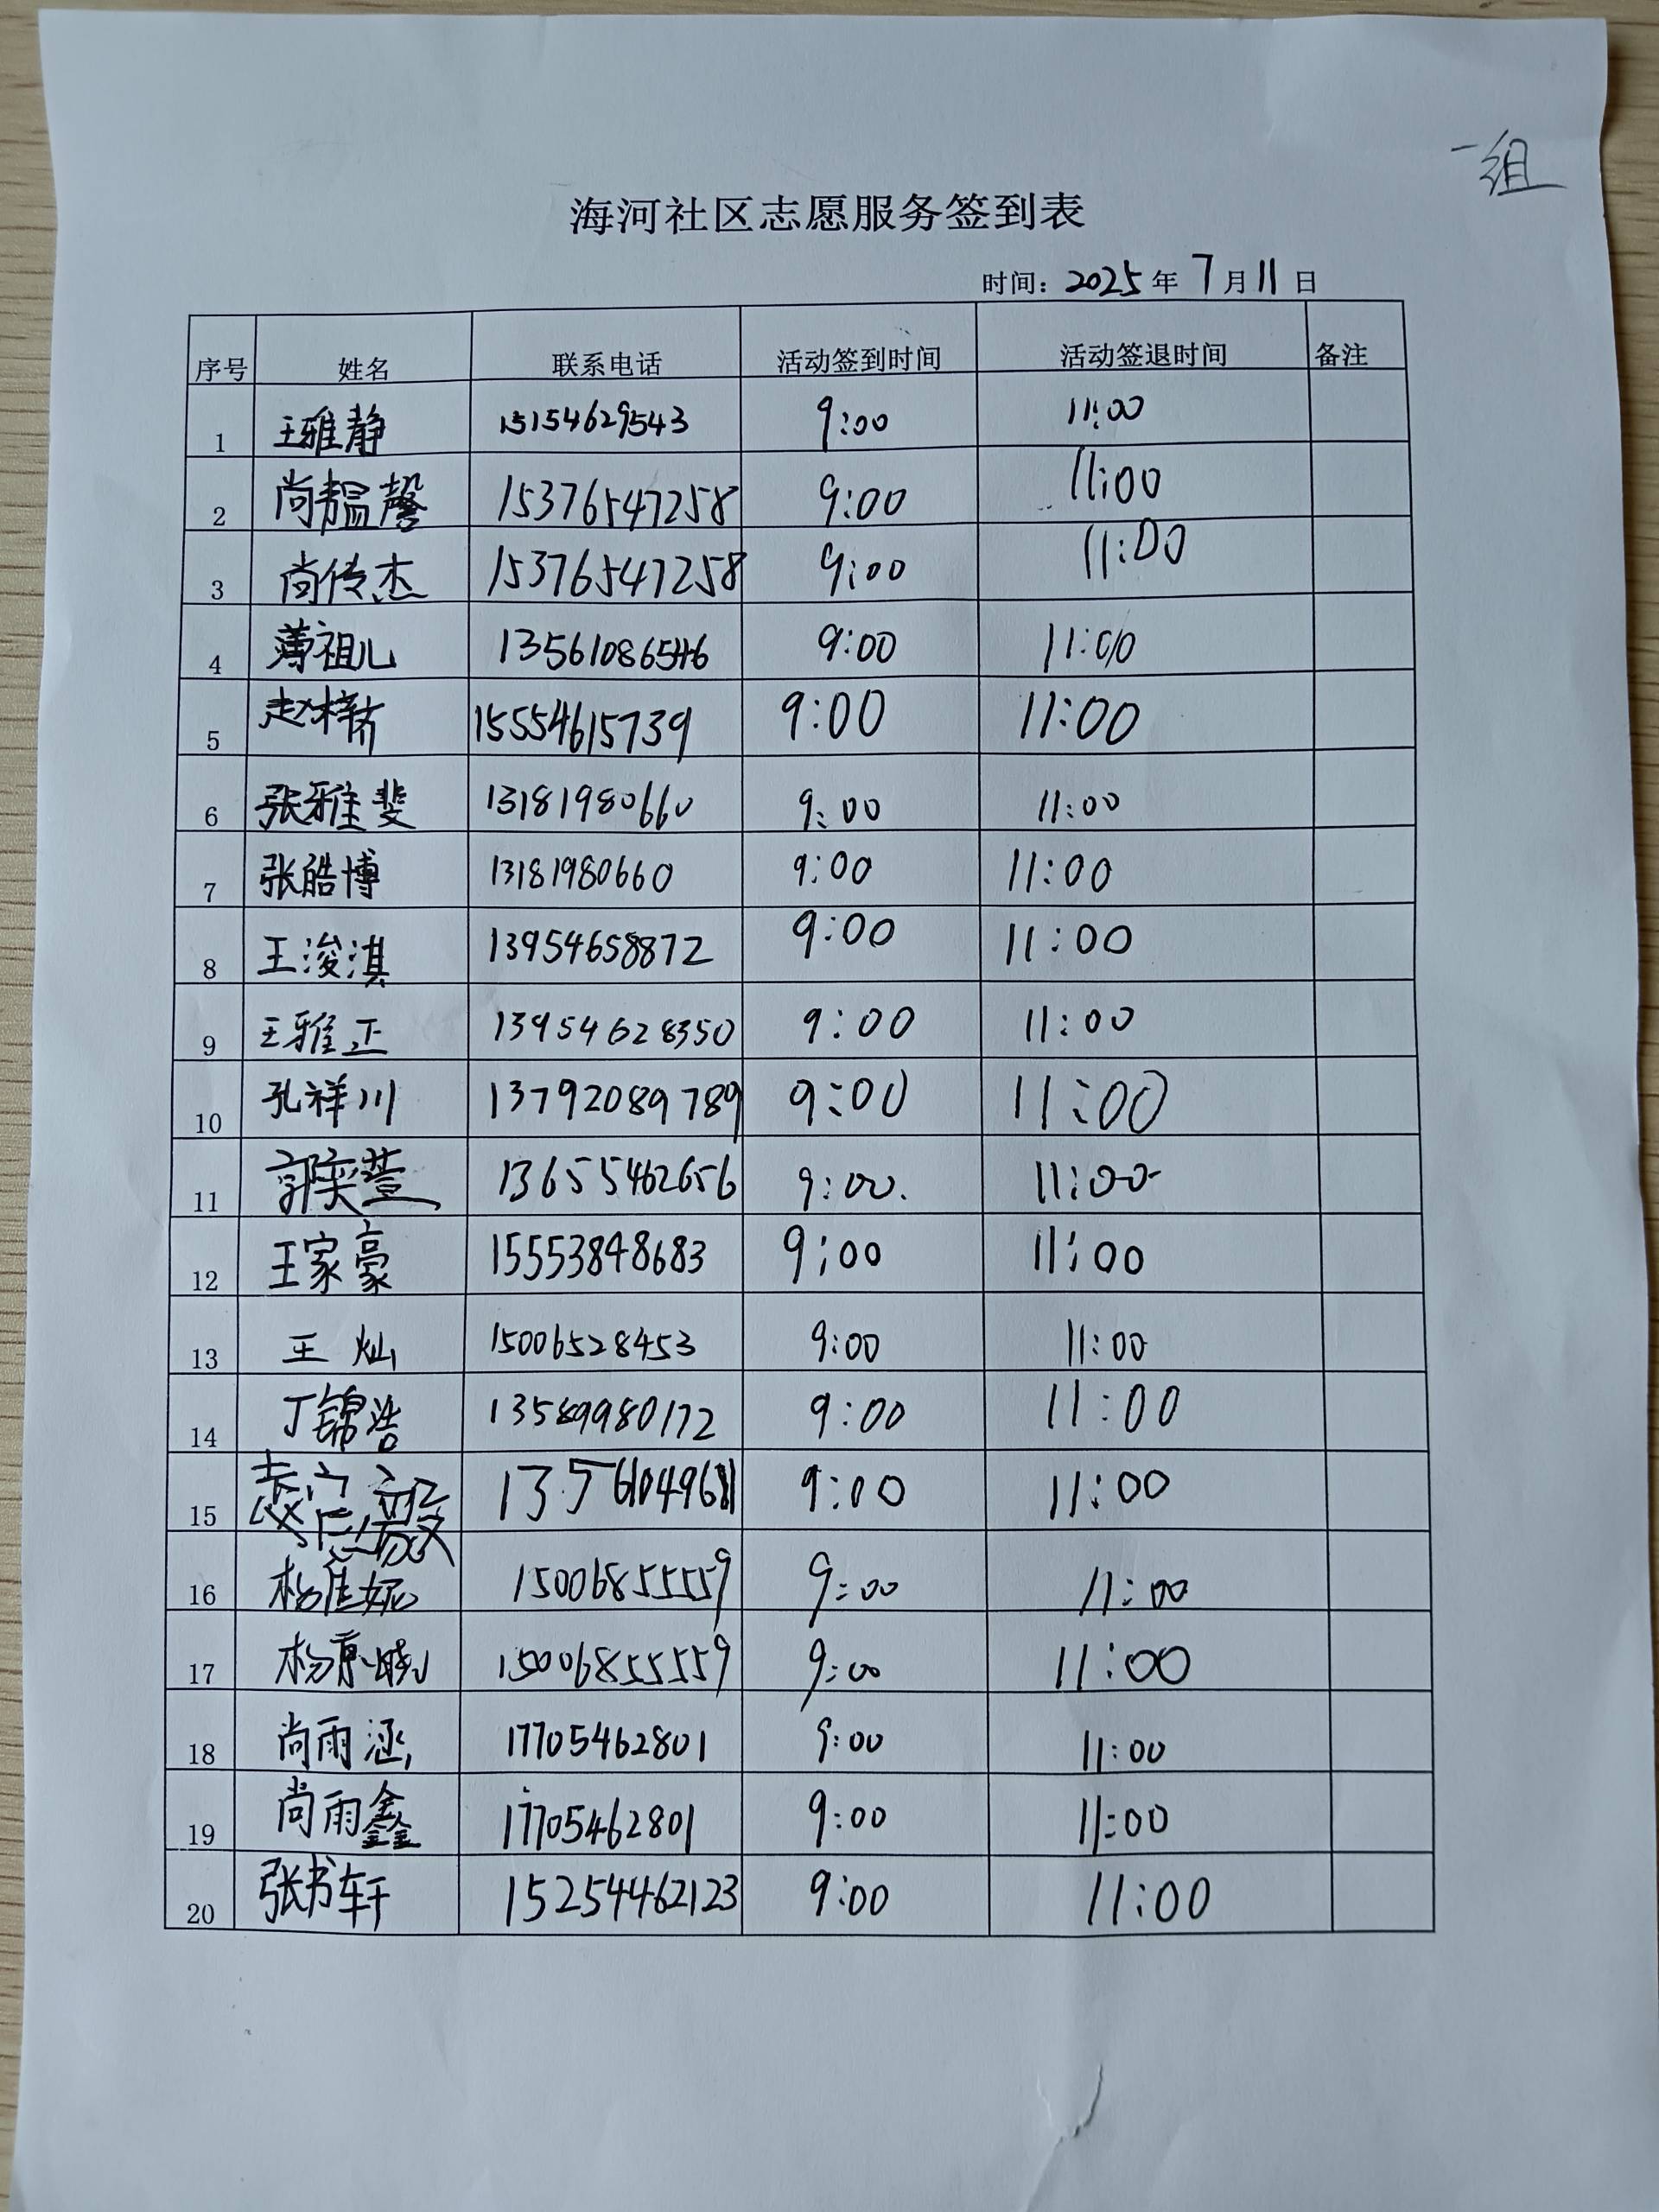 一组
海河社区志愿服务签到表
时间：2025年7月11日
序号 姓名 联系电话 活动签到时间 活动签退时间 备注
1 王雅静 15154629543 9:00 11:00
2 尚韫馨 15376547258 9:00 11:00
3 尚传杰 15376547258 9:00 11:00
4 薄祖儿 13561086546 9:00 11:00
5 赵梓乔 15554615739 9:00 11:00
6 张雅斐 13181980660 9:00 11:00
7 张皓博 13181980660 9:00 11:00
8 王浚淇 13954658872 9:00 11:00
9 王雅正 13954628350 9:00 11:00
10 孔祥川 13792089789 9:00 11:00
11 郭奕萱 13655462656 9:00 11:00
12 王家豪 15553848683 9:00 11:00
13 王灿 15006528453 9:00 11:00
14 丁锦浩 13589980172 9:00 11:00
15 13561049681 9:00 11:00
16 杨佳妮 15006855559 9:00 11:00
17 杨景晓 15006855559 9:00 11:00
18 尚雨涵 17705462801 9:00 11:00
19 尚雨鑫 17705462801 9:00 11:00
20 张书轩 15254462123 9:00 11:00